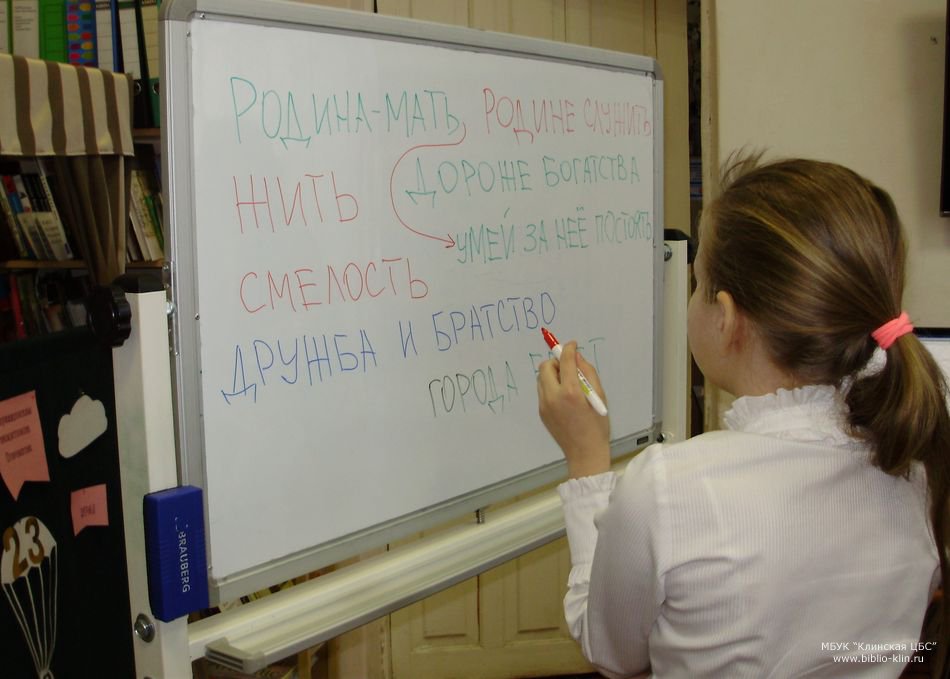 РОДИНА-МАТЬ,
РОДИНЕ СЛУЖИТЬ
ЖИТЬ
ДОРОЖЕ БОГАТСТВА
УМЕЙ ЗА НЕЁ ПОСТОЯТЬ
СМЕЛОСТЬ
ДРУЖБА И БРАТСТВО
ГОРОДА
BRAUBERG
23
МБУК "Клинская ЦБС"
www.biblio-klin.ru